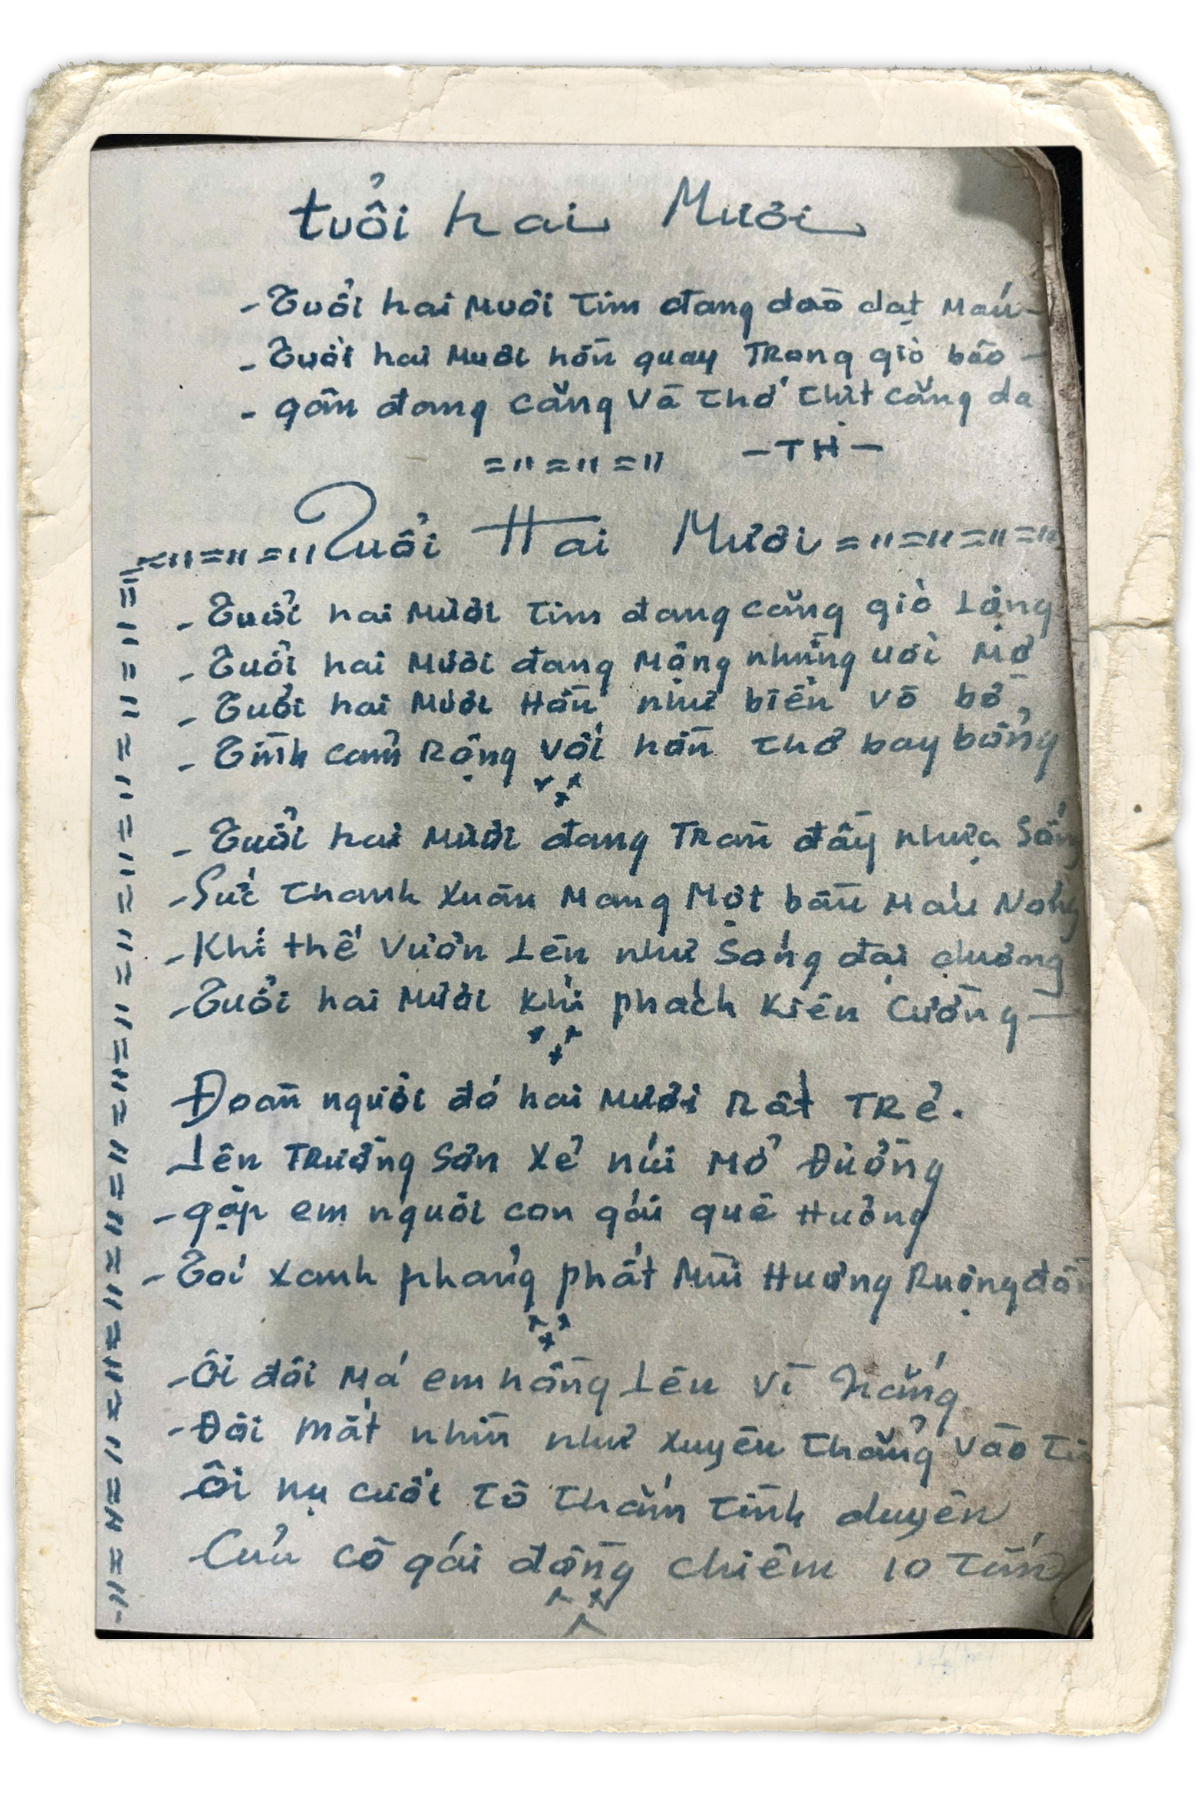 tuổi hai Mười
- Tuổi hai Mươi Tim đang dào dạt Máu -
- Tuổi hai Mươi hồn quay TRong gió bão -
- gân đang căng Và Thớ Thịt căng da
= " = " = " - TH -
Tuổi Hai Mươi
- Tuổi hai Mươi Tim đang căng gió Lộng
- Tuổi hai Mươi đang Mộng những ươi Mơ
- Tuổi hai Mươi Hồn như biển Vỗ bờ,
- Tình cảm Rộng Với hồn Thơ bay bổng
- Tuổi hai Mươi đang TRàn đầy nhựa Sống
- Sức Thanh Xuân Mang Một bầu Máu Nóng
- Khí thế Vươn Lên như Sóng đại dương
- Tuổi hai Mươi Khí phách Kiên Cường -
Đoàn người đó hai Mươi Rất TRẻ.
Lên TRường Sơn Xẻ núi Mở Đường
- gặp em người con gái quê Hương
- Tóc Xanh phảng phất Mùi Hương Ruộng đồn
- Ôi đôi Má em hồng Lên Vì Nắng
- Đôi Mắt nhìn như Xuyên Thẳng Vào
Ôi nụ cười Tô Thắm Tình duyên
Của Cô gái đồng chiêm 10 Tấn